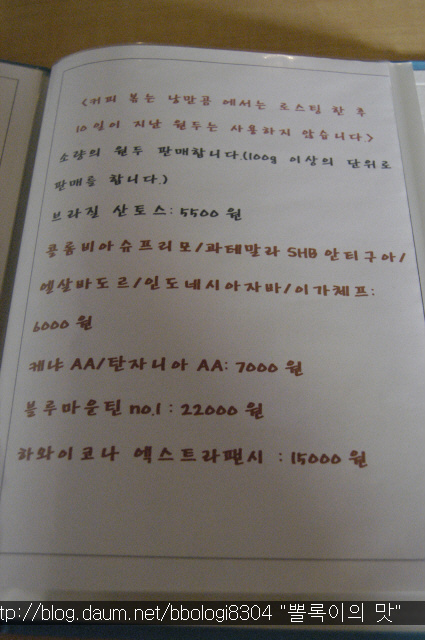 <커피 볶는 낭만곰 에서는 로스팅 한 후
10일이 지난 원두는 사용하지 않습니다>
소량의 원두 판매합니다.(100g 이상의 단위로
판매를 합니다.)
브라질 산토스: 5500 원
콜롬비아슈프리모/과테말라 SHB 안티구아/
엘살바도르/인도네시아자바/이가체프:
6000 원
케냐 AA/탄자니아 AA: 7000 원
블루마운틴 no.1 : 22000 원
하와이코나 엑스트라팬시 : 15000 원
tp://blog.daum.net/bbologi8304 "뽈록이의 맛"